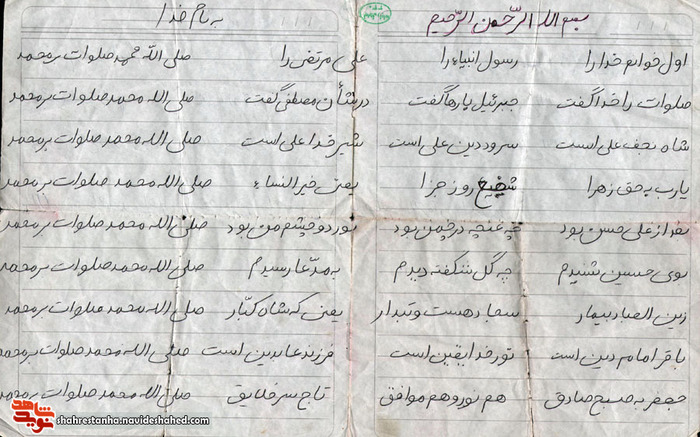 بسم الله الرّحمن الرّحیم
به نام خدا
اول خوانم خدا را رسول انبیاء را علی مرتضی را صلی الله محمد صلوات بر محمد
صلوات را خدا گفت جبرئیل بارها گفت در شأن مصطفی گفت صلی الله محمد صلوات بر محمد
شاه نجف علی است سرور دین علی است شیر خدا علی است صلی الله محمد صلوات بر محمد
یارب به حق زهرا شفیع روز جزا یعنی خیر النساء صلی الله محمد صلوات بر محمد
بعد از علی حسن بود چه غنچه در چمن بود نور دو چشم من بود صلی الله محمد صلوات بر محمد
بوی حسین شنیدم چه گل شکفته دیدم به مدعا رسیدم صلی الله محمد صلوات بر محمد
زین العباد بیمار سجاد هست و تبدار یعنی که شاه کبّار صلی الله محمد صلوات بر محمد
باقر امام دین است نور خدا یقین است فرزند عابدین است صلی الله محمد صلوات بر محمد
جعفر به صبح صادق هم نور و هم موافق تاج سر خلایق صلی الله محمد صلوات بر محمد
نوید شاهد
shahrestanha.navideshahed.com